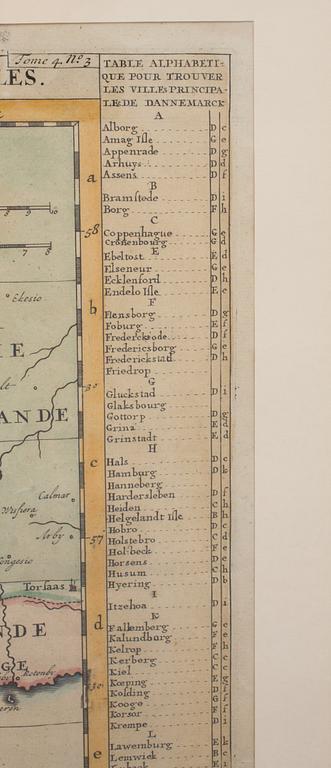 Tome 4. No 3
LES.
TABLE ALPHABETI-
QUE POUR TROUVER
LES VILLES PRINCIPA-
LES DE DANNEMARCK
A
Alborg D c
Amag Isle G e
Appenrade D g
Arhuys D d
Assens D f
B
Bramstede D i
Borg F h
C
Coppenhague G e
Cronenbourg G d
E
Ebeltost E d
Elseneur G e
Ecklenford D h
Endelo Isle E e
F
Flensborg D g
Foburg E f
Fredericksode D f
Fredericsborg G e
Frederickstad D h
Friedrop
G
Gluckstad D i
Glaksbourg
Gottorp D g
Grina E d
Grinstadt E d
H
Hals D c
Hamburg D k
Hanneberg
Hardersleben D f
Heiden C h
Helgelandt Isle B h
Hobro D c
Holstebro C d
Holbeck F e
Horsens D e
Husum C h
Hyering D b
I
Itzehoa D i
K
Falkemberg G c
Kalundburg F e
Kelrop F h
Kerberg C c
Kiel
Koeping E g
Kolding D f
Kooge G f
Korsor F f
Krempe D i
L
Lawemburg E k
Lemwick B c
a
58
b
30
c
57
d
30
e
7 8
Ekesio
IE
ANDE
Calmar
Wisfiera
Torsaas
NDE
GE